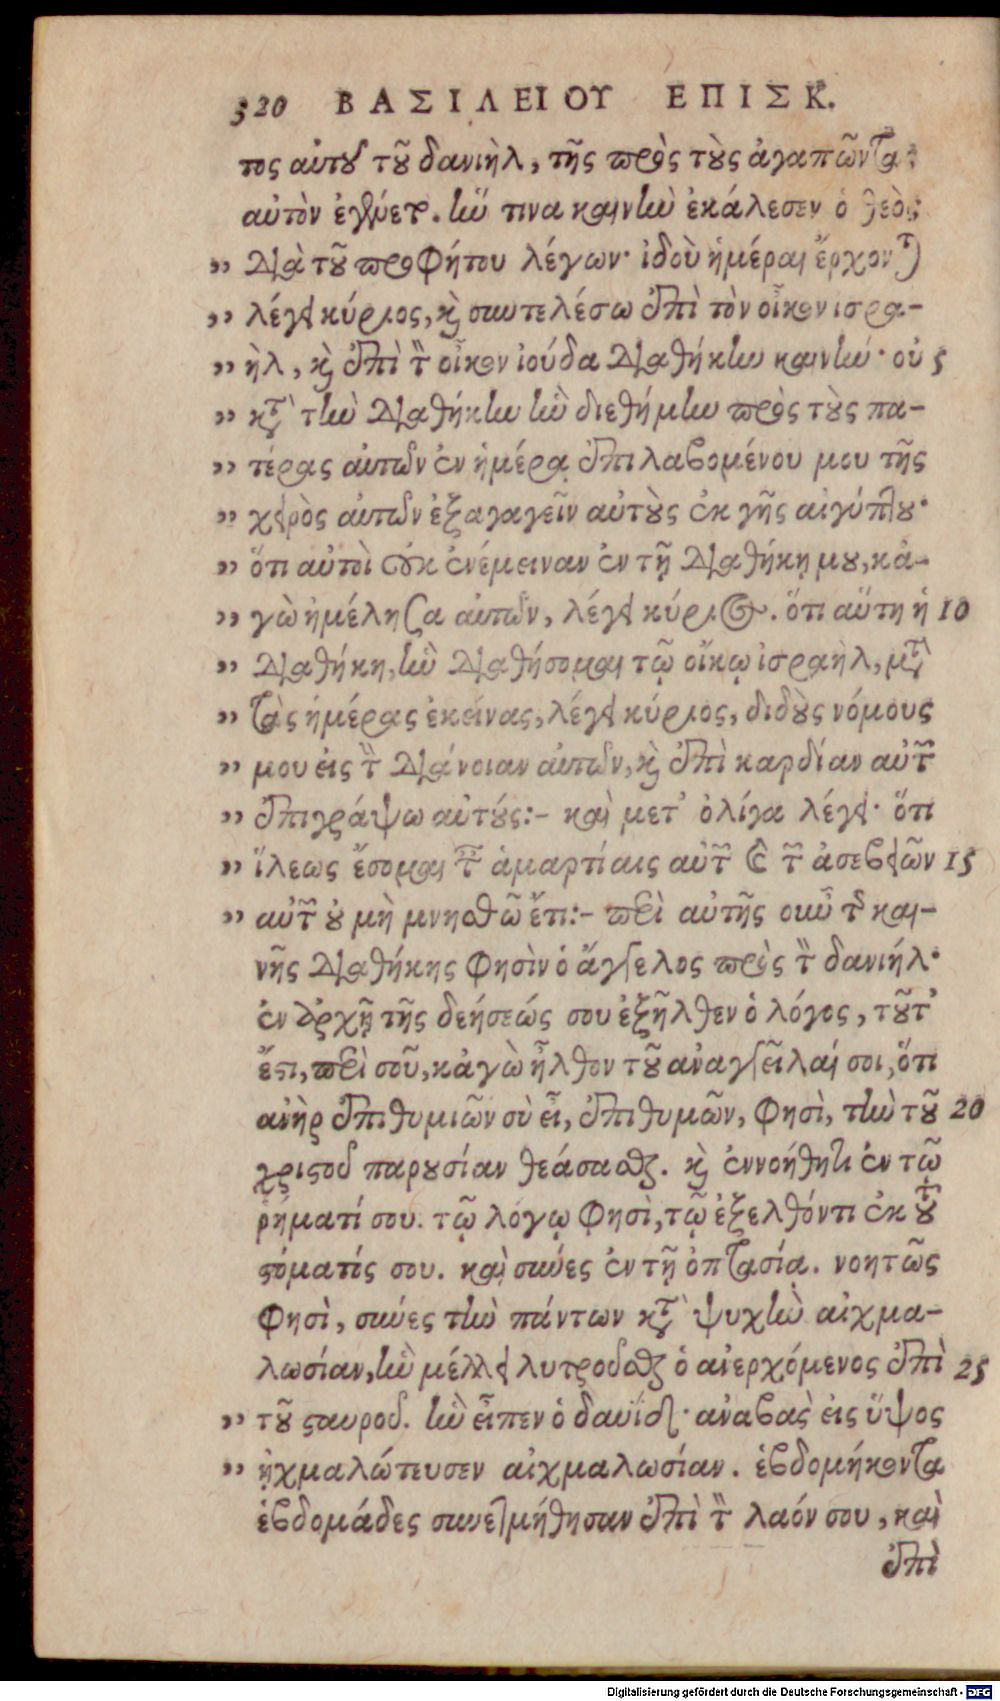 320 ΒΑΣΙΛΕΙΟΥ ΕΠΙΣΚ.
τος αὐτοῦ τοῦ δανιὴλ, τῆς πρὸς τοὺς ἀγαπῶντας
αὐτὸν ἐγγύετ. ἥν τινα καινὴν ἐκάλεσεν ὁ θεὸς
„ διὰ τοῦ προφήτου λέγων· ἰδοὺ ἡμέραι ἔρχονται
„ λέγει κύριος, καὶ συντελέσω ἐπὶ τὸν οἶκον ισρα-
„ ὴλ, καὶ ἐπὶ τὸν οἶκον ἰούδα διαθήκην καινήν· οὐ 5
„ κατὰ τὴν διαθήκην ἣν διεθέμην πρὸς τοὺς πα-
„ τέρας αὐτῶν ἐν ἡμέρᾳ ἐπιλαβομένου μου τῆς
„ χειρὸς αὐτῶν ἐξαγαγεῖν αὐτοὺς ἐκ γῆς αἰγύπτου·
„ ὅτι αὐτοὶ οὐκ ἐνέμειναν ἐν τῇ διαθήκῃ μου, κἀ-
„ γὼ ἠμέλησα αὐτῶν, λέγει κύριος. ὅτι αὕτη ἡ 10
„ διαθήκη, ἣν διαθήσομαι τῷ οἴκῳ ἰσραὴλ, μετὰ
„ τὰς ἡμέρας ἐκείνας, λέγει κύριος, διδοὺς νόμους
„ μου εἰς τὴν διάνοιαν αὐτῶν, καὶ ἐπὶ καρδίαν αὐτῶν
„ ἐπιγράψω αὐτούς:- καὶ μετ’ ὀλίγα λέγει· ὅτι
„ ἵλεως ἔσομαι ταῖς ἁμαρτίαις αὐτῶν καὶ τῶν ἀσεβειῶν 15
„ αὐτῶν οὐ μὴ μνησθῶ ἔτι:- περὶ αὐτῆς οὖν τῆς και-
νῆς διαθήκης φησὶν ὁ ἄγγελος πρὸς τὸν δανιήλ·
ἐν ἀρχῇ τῆς δεήσεώς σου ἐξῆλθεν ὁ λόγος, τοῦτ’
ἔστι, περὶ σοῦ, κἀγὼ ἦλθον τοῦ ἀναγγεῖλαί σοι, ὅτι
ἀνὴρ ἐπιθυμιῶν σὺ εἶ, ἐπιθυμῶν, φησὶ, τὴν τοῦ 20
χριστοῦ παρουσίαν θεάσασθαι. καὶ ἐννοήθητι ἐν τῷ
ῥήματί σου. τῷ λόγῳ φησὶ, τῷ ἐξελθόντι ἐκ τοῦ
στόματός σου. καὶ σύνες ἐν τῇ ὀπτασίᾳ. νοητῶς
φησὶ, σύνες τὴν πάντων κατὰ ψυχὴν αἰχμα-
λωσίαν, ἣν μέλλει λυτροῦσθαι ὁ ἀνερχόμενος ἐπὶ 25
„ τοῦ σταυροῦ. ἣν εἶπεν ὁ δαυίδ· ἀναβὰς εἰς ὕψος
„ ᾐχμαλώτευσεν αἰχμαλωσίαν. ἑβδομήκοντα
ἑβδομάδες συνετμήθησαν ἐπὶ τὸν λαόν σου, καὶ
ἐπὶ
Digitalisierung gefördert durch die Deutsche Forschungsgemeinschaft - DFG